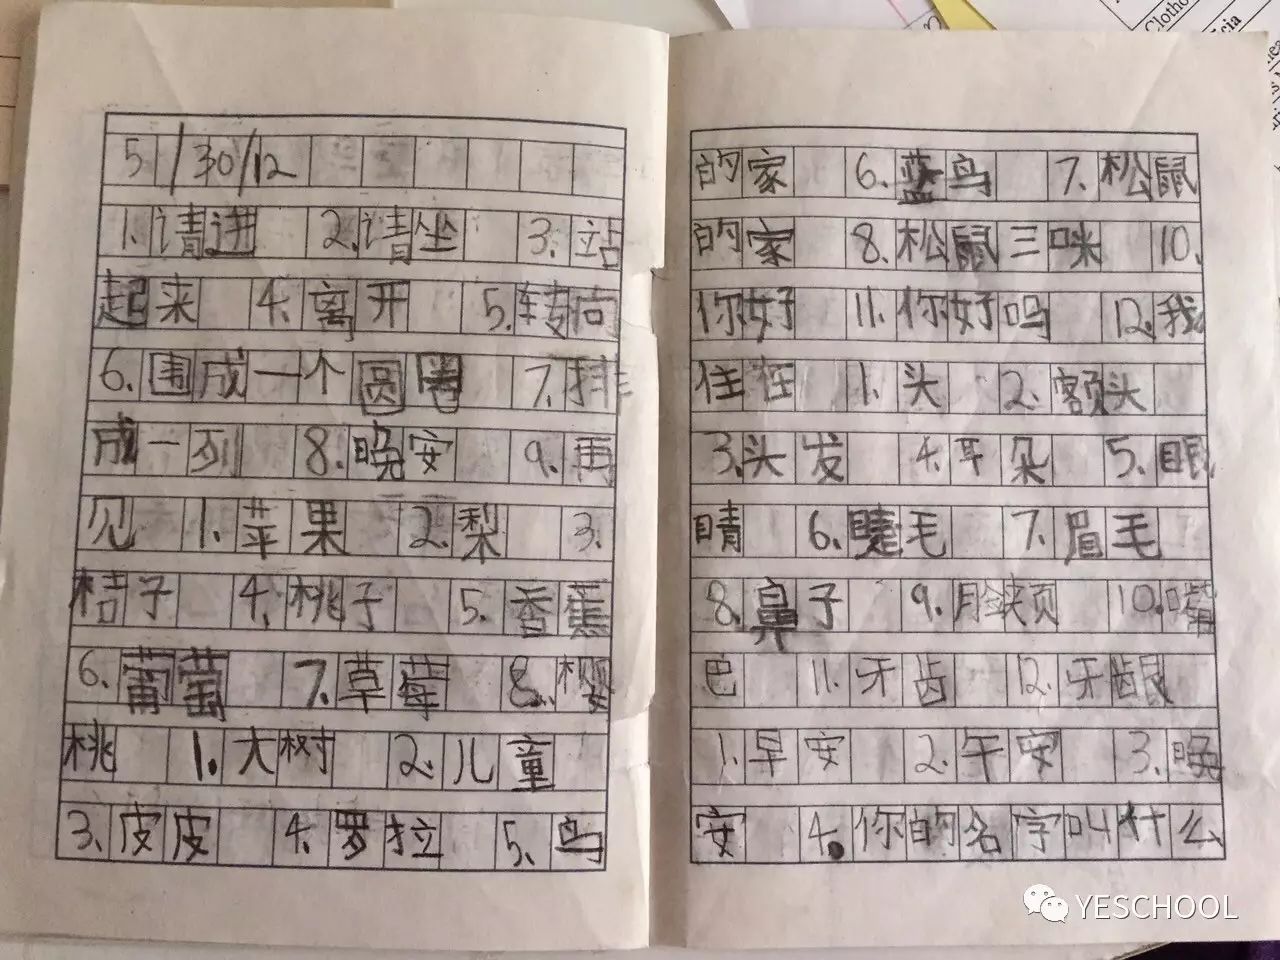 5/30/12
1.请进 2.请坐 3.站
起来 4.离开 5.转向
6.围成一个圆圈 7.排
成一列 8.晚安 9.再
见 1.苹果 2.梨 3.
桔子 4.桃子 5.香蕉
6.葡萄 7.草莓 8.樱
桃 1.大树 2.儿童
3.皮皮 4.罗拉 5.鸟
的家 6.蓝鸟 7.松鼠
的家 8.松鼠三咪 10.
你好 11.你好吗 12.我
住在 1.头 2.额头
3.头发 4.耳朵 5.眼
睛 6.睫毛 7.眉毛
8.鼻子 9.脸颊 10.嘴
巴 11.牙齿 12.牙龈
1.早安 2.午安 3.晚
安 4.你的名字叫什么
YESCHOOL
Clotho